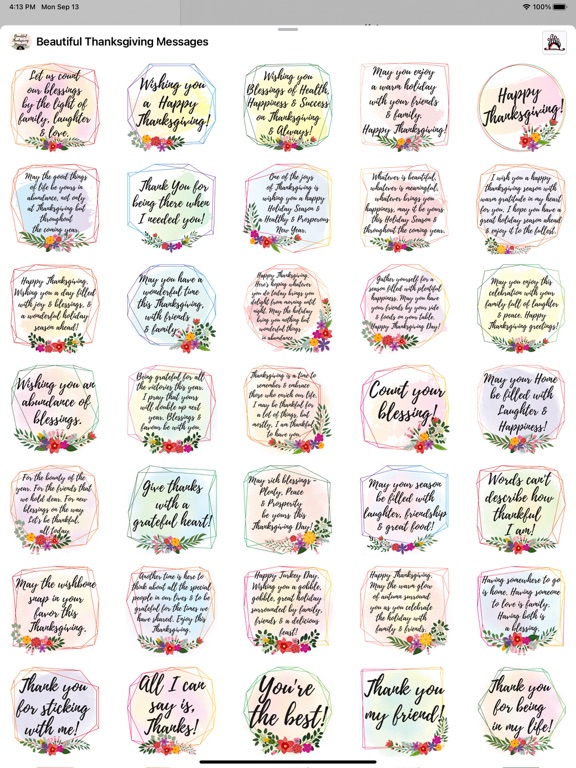 4:13 PM Mon Sep 13
100%
Beautiful Thanksgiving Messages
Let us count
our blessings
by the light of
family, laughter
& love.
Wishing you
a Happy
Thanksgiving!
Wishing you
Blessings of Health,
Happiness & Success
on Thanksgiving
& Always!
May you enjoy
a warm holiday
with your friends
& family.
Happy Thanksgiving!
Happy
Thanksgiving!
May the good things
of life be yours in
abundance, not only
at Thanksgiving but
throughout
the coming year.
Thank You for
being there when
I needed you!
One of the joys
of Thanksgiving is
wishing you a happy
Holiday Season &
a Healthy & Prosperous
New Year.
Whatever is beautiful,
whatever is meaningful,
whatever brings you
happiness, may it be yours
this Holiday Season &
throughout the coming year.
I wish you a happy
thanksgiving season with
warm gratitude in my heart
for you. I hope you have a
great holiday season ahead
& enjoy it to the fullest.
Happy Thanksgiving.
Wishing you a day filled
with joy & blessings, &
a wonderful holiday
season ahead!
May you have a
wonderful time
this Thanksgiving,
with friends
& family.
Happy Thanksgiving.
Here's hoping whatever
you do today brings you
delight from morning until
night. May the holiday
bring you nothing but
wonderful things
in abundance.
Gather yourself for a
season filled with plentiful
happiness. May you have
your friends by your side
& foods on your table.
Happy Thanksgiving Day!
May you enjoy this
celebration with your
family full of laughter
& peace. Happy
Thanksgiving greetings!
Wishing you an
abundance of
blessings.
Being grateful for all
the victories this year.
I pray that yours
will double up next
year. Blessings &
favours be with you.
Thanksgiving is a time to
remember & embrace
those who enrich our life.
I may be thankful for
a lot of things, but
mostly, I am thankful
to have you.
Count your
blessing!
May your Home
be filled with
Laughter &
Happiness!
For the bounty of the
year. For the friends that
we hold dear. For new
blessings on the way.
Let's be thankful,
all today.
Give thanks
with a
grateful heart!
May rich blessings -
Plenty, Peace
& Prosperity
be yours this
Thanksgiving Day!
May your season
be filled with
laughter, friendship
& great food!
Words can't
describe how
thankful
I am!
May the wishbone
snap in your
favor this
Thanksgiving.
Another time is here to
think about all the special
people in our lives & to be
grateful for the times we
have shared. Enjoy this
Thanksgiving.
Happy Turkey Day.
Wishing you a gobble,
gobble, great holiday
surrounded by family,
friends & a delicious
feast!
Happy Thanksgiving.
May the warm glow
of autumn surround
you as you celebrate
the holiday with
family & friends.
Having somewhere to go
is home. Having someone
to love is family.
Having both is
a blessing.
Thank you
for sticking
with me!
All I can
say is,
Thanks!
You're
the best!
Thank you
my friend!
Thank you
for being
in my life!